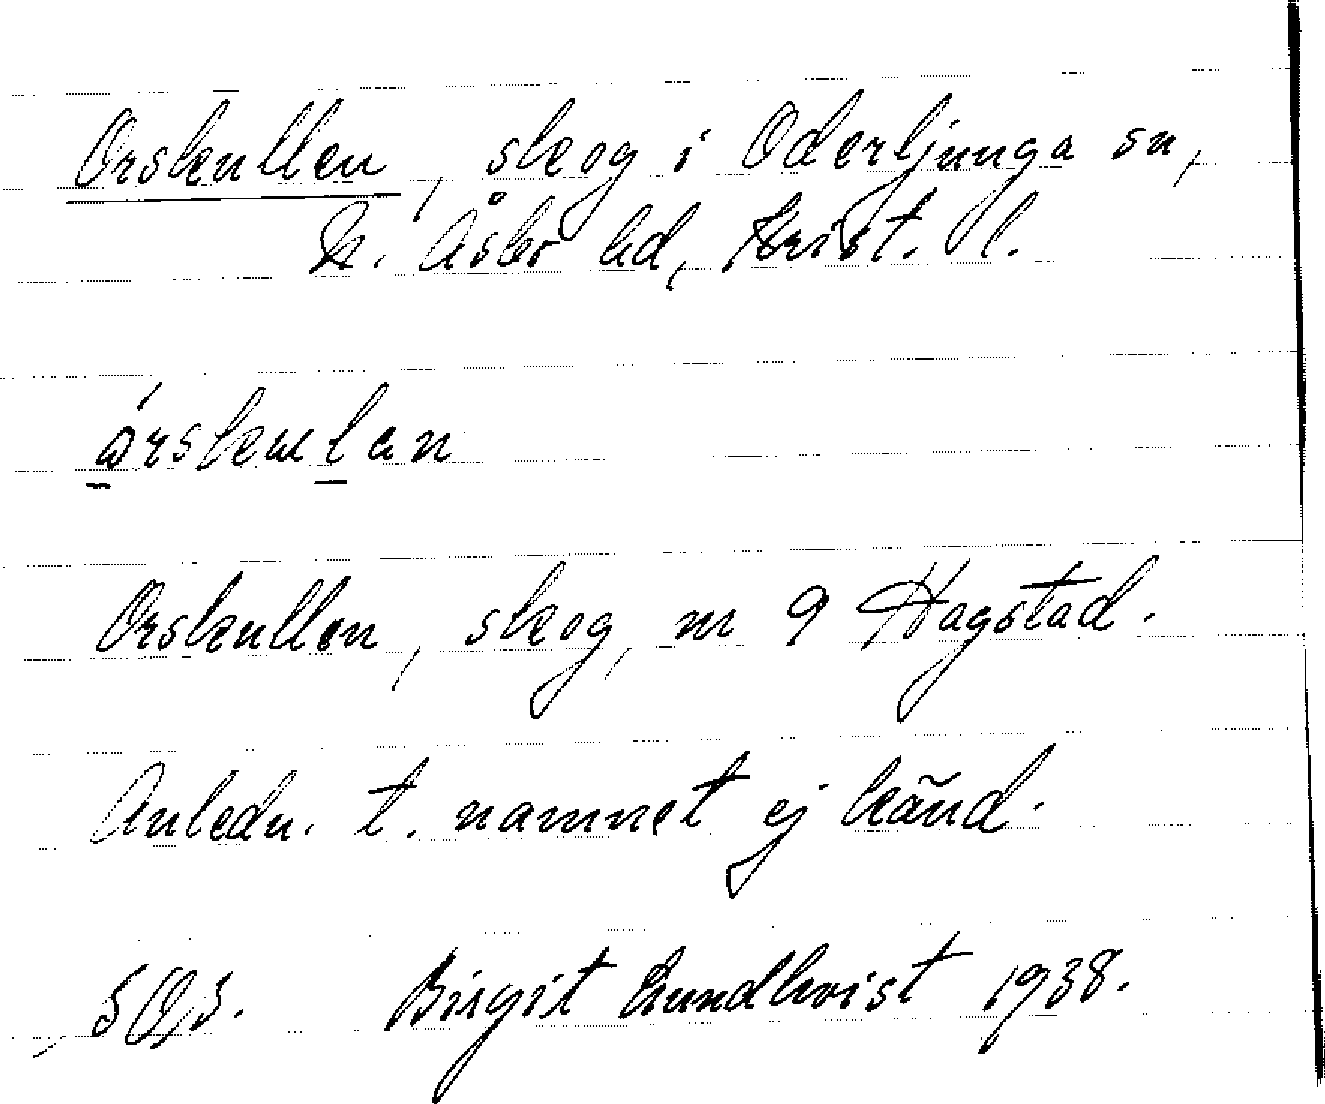 Orskullen, skog i Oderljunga sn,
N. Åsbo hd, Krist. l.
Orskullen, skog, nr 9 Hagstad.
Anledn. t. namnet ej känd.
Birgit Lundkvist 1938.